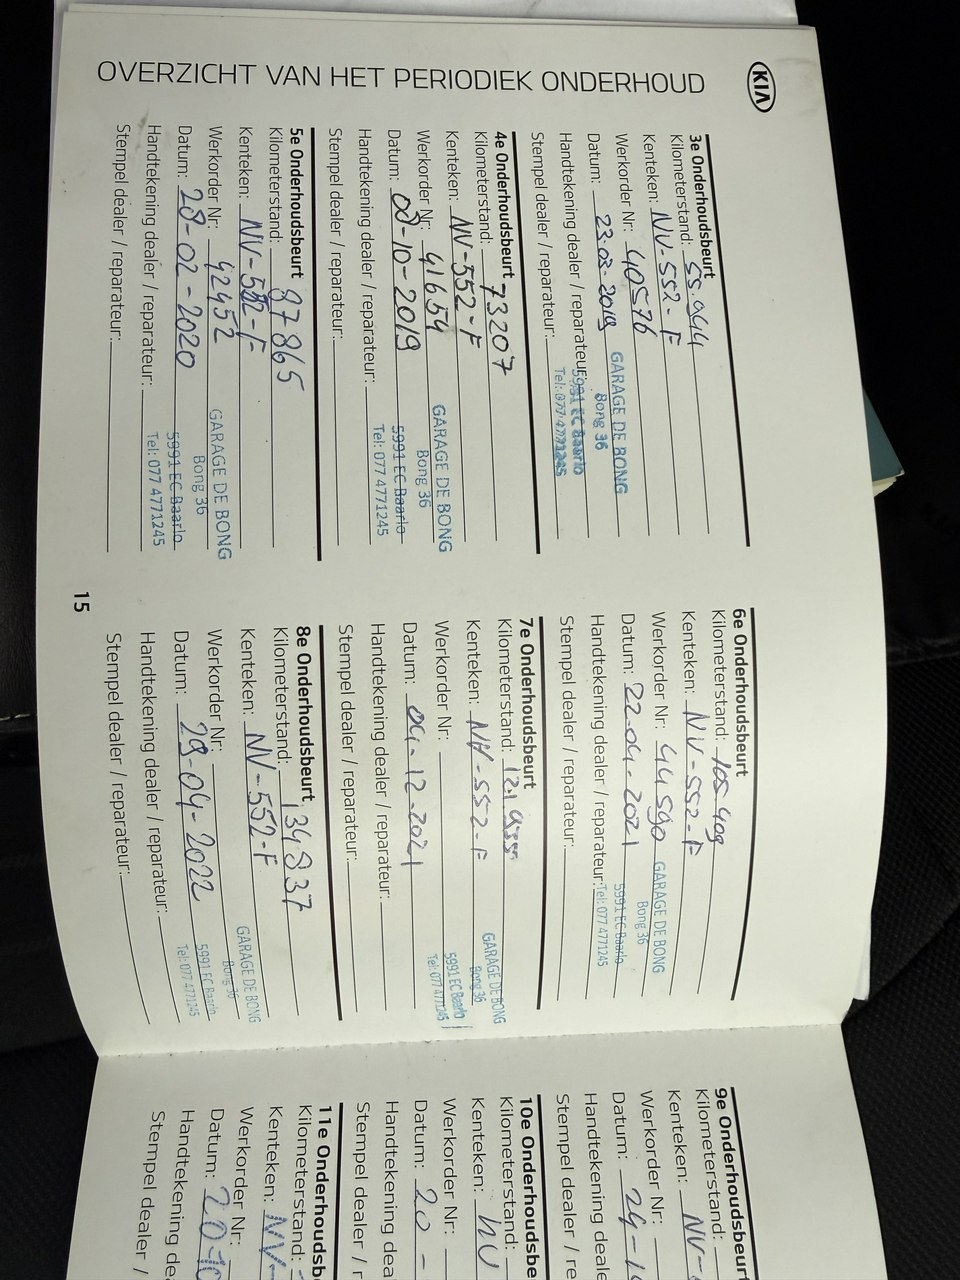 KIA
OVERZICHT VAN HET PERIODIEK ONDERHOUD
3e Onderhoudsbeurt
Kilometerstand: 55.044
Kenteken: NV-552-F
Werkorder Nr: 40576
Datum: 23-03-2019
Handtekening dealer / reparateur:
Stempel dealer / reparateur:
GARAGE DE BONG
Bong 36
5991 EC Baarlo
Tel: 077 4771245
4e Onderhoudsbeurt
Kilometerstand: 73207
Kenteken: NV-552-F
Werkorder Nr: 41654
Datum: 08-10-2019
Handtekening dealer / reparateur:
Stempel dealer / reparateur:
GARAGE DE BONG
Bong 36
5991 EC Baarlo
Tel: 077 4771245
5e Onderhoudsbeurt
Kilometerstand: 87865
Kenteken: NV-552-F
Werkorder Nr: 42452
Datum: 28-02-2020
Handtekening dealer / reparateur:
Stempel dealer / reparateur:
GARAGE DE BONG
Bong 36
5991 EC Baarlo
Tel: 077 4771245
6e Onderhoudsbeurt
Kilometerstand: 105409
Kenteken: NV-552-F
Werkorder Nr: 44590
Datum: 22-04-2021
Handtekening dealer / reparateur:
Stempel dealer / reparateur:
GARAGE DE BONG
Bong 36
5991 EC Baarlo
Tel: 077 4771245
7e Onderhoudsbeurt
Kilometerstand:
Kenteken: NV-552-F
Werkorder Nr:
Datum: 04-12-2021
Handtekening dealer / reparateur:
Stempel dealer / reparateur:
GARAGE DE BONG
Bong 36
5991 EC Baarlo
Tel: 077 4771245
8e Onderhoudsbeurt
Kilometerstand: 134837
Kenteken: NV-552-F
Werkorder Nr:
Datum: 29-04-2022
Handtekening dealer / reparateur:
Stempel dealer / reparateur:
GARAGE DE BONG
Bong 36
5991 EC Baarlo
Tel: 077 4771245
15
9e Onderhoudsbeurt
Kilometerstand:
Kenteken: NV-
Werkorder Nr:
Datum: 24-1
Handtekening deale
Stempel dealer / re
10e Onderhoudsbe
Kilometerstand:
Kenteken: NV
Werkorder Nr:
Datum: 20-
Handtekening dea
Stempel dealer / r
11e Onderhoudsb
Kilometerstand:
Kenteken: NV-
Werkorder Nr:
Datum: 20-10
Handtekening de
Stempel dealer /